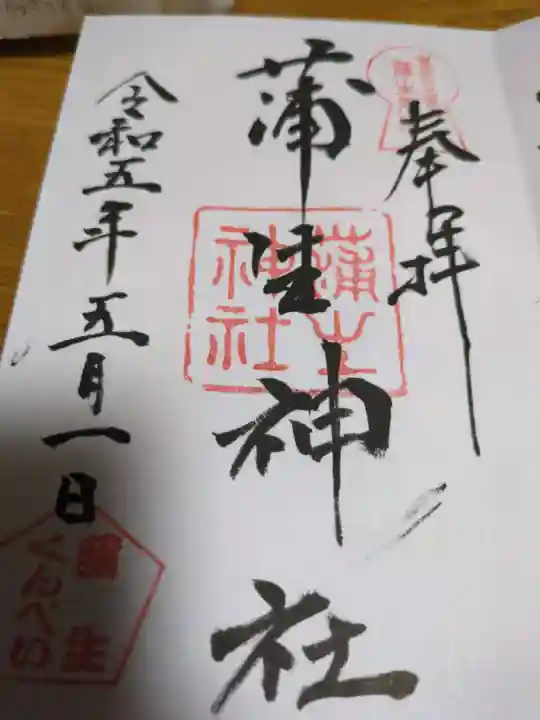 奉拝
蒲生神社
蒲生
神社
令和五年五月一日
蒲生
くんぺい